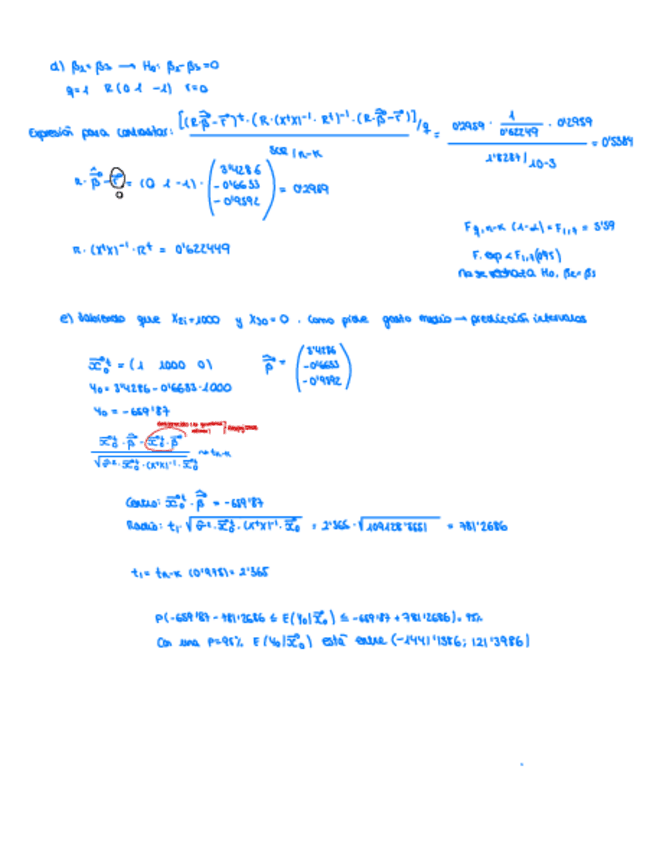 d) β₂ = β₃ → H₀: β₂ - β₃ = 0
q = 1 R (0 1 -1) r = 0
Expresión para contrastar: [(R·β̂ - r)ᵗ · (R·(XᵗX)⁻¹·Rᵗ)⁻¹ · (R·β̂ - r)]/q / SCR/n-k = 0'2959 · 1/0'62249 · 0'2959 / 1'8287/10-3 = 0'5384
R·β̂ - r = (0 1 -1) · (3'4286 -0'6633 -0'9592) = 0'2959
0
R·(XᵗX)⁻¹·Rᵗ = 0'622449
F q, n-k (1-α) = F₁,₇ = 5'59
F. exp < F₁,₇ (0'95)
No se rechaza H₀, β₂ = β₃
e) Sabiendo que X₂ᵢ = 1000 y X₃₀ = 0. Como pide gasto medio → predicción intervalos
x₀ᵗ = (1 1000 0) β̂ = (3'4286 -0'6633 -0'9592)
Y₀ = 3'4286 - 0'6633·1000
Y₀ = -659'87
x₀ᵗ·β̂ - x₀ᵗ·β / √σ̂²·x₀ᵗ·(XᵗX)⁻¹·x₀ ~ tₙ₋ₖ
Centro: x₀ᵗ·β̂ = -659'87
Radio: t₁·√σ̂²·x₀ᵗ·(XᵗX)⁻¹·x₀ = 2'365·√109128'8651 = 781'2686
t₁ = tₙ₋ₖ (0'975) = 2'365
P(-659'87 - 781'2686 ≤ E(Y₀|x₀) ≤ -659'87 + 781'2686) = 95%
Con una P=95% E(Y₀|x₀) está entre (-1441'1386; 121'3986)